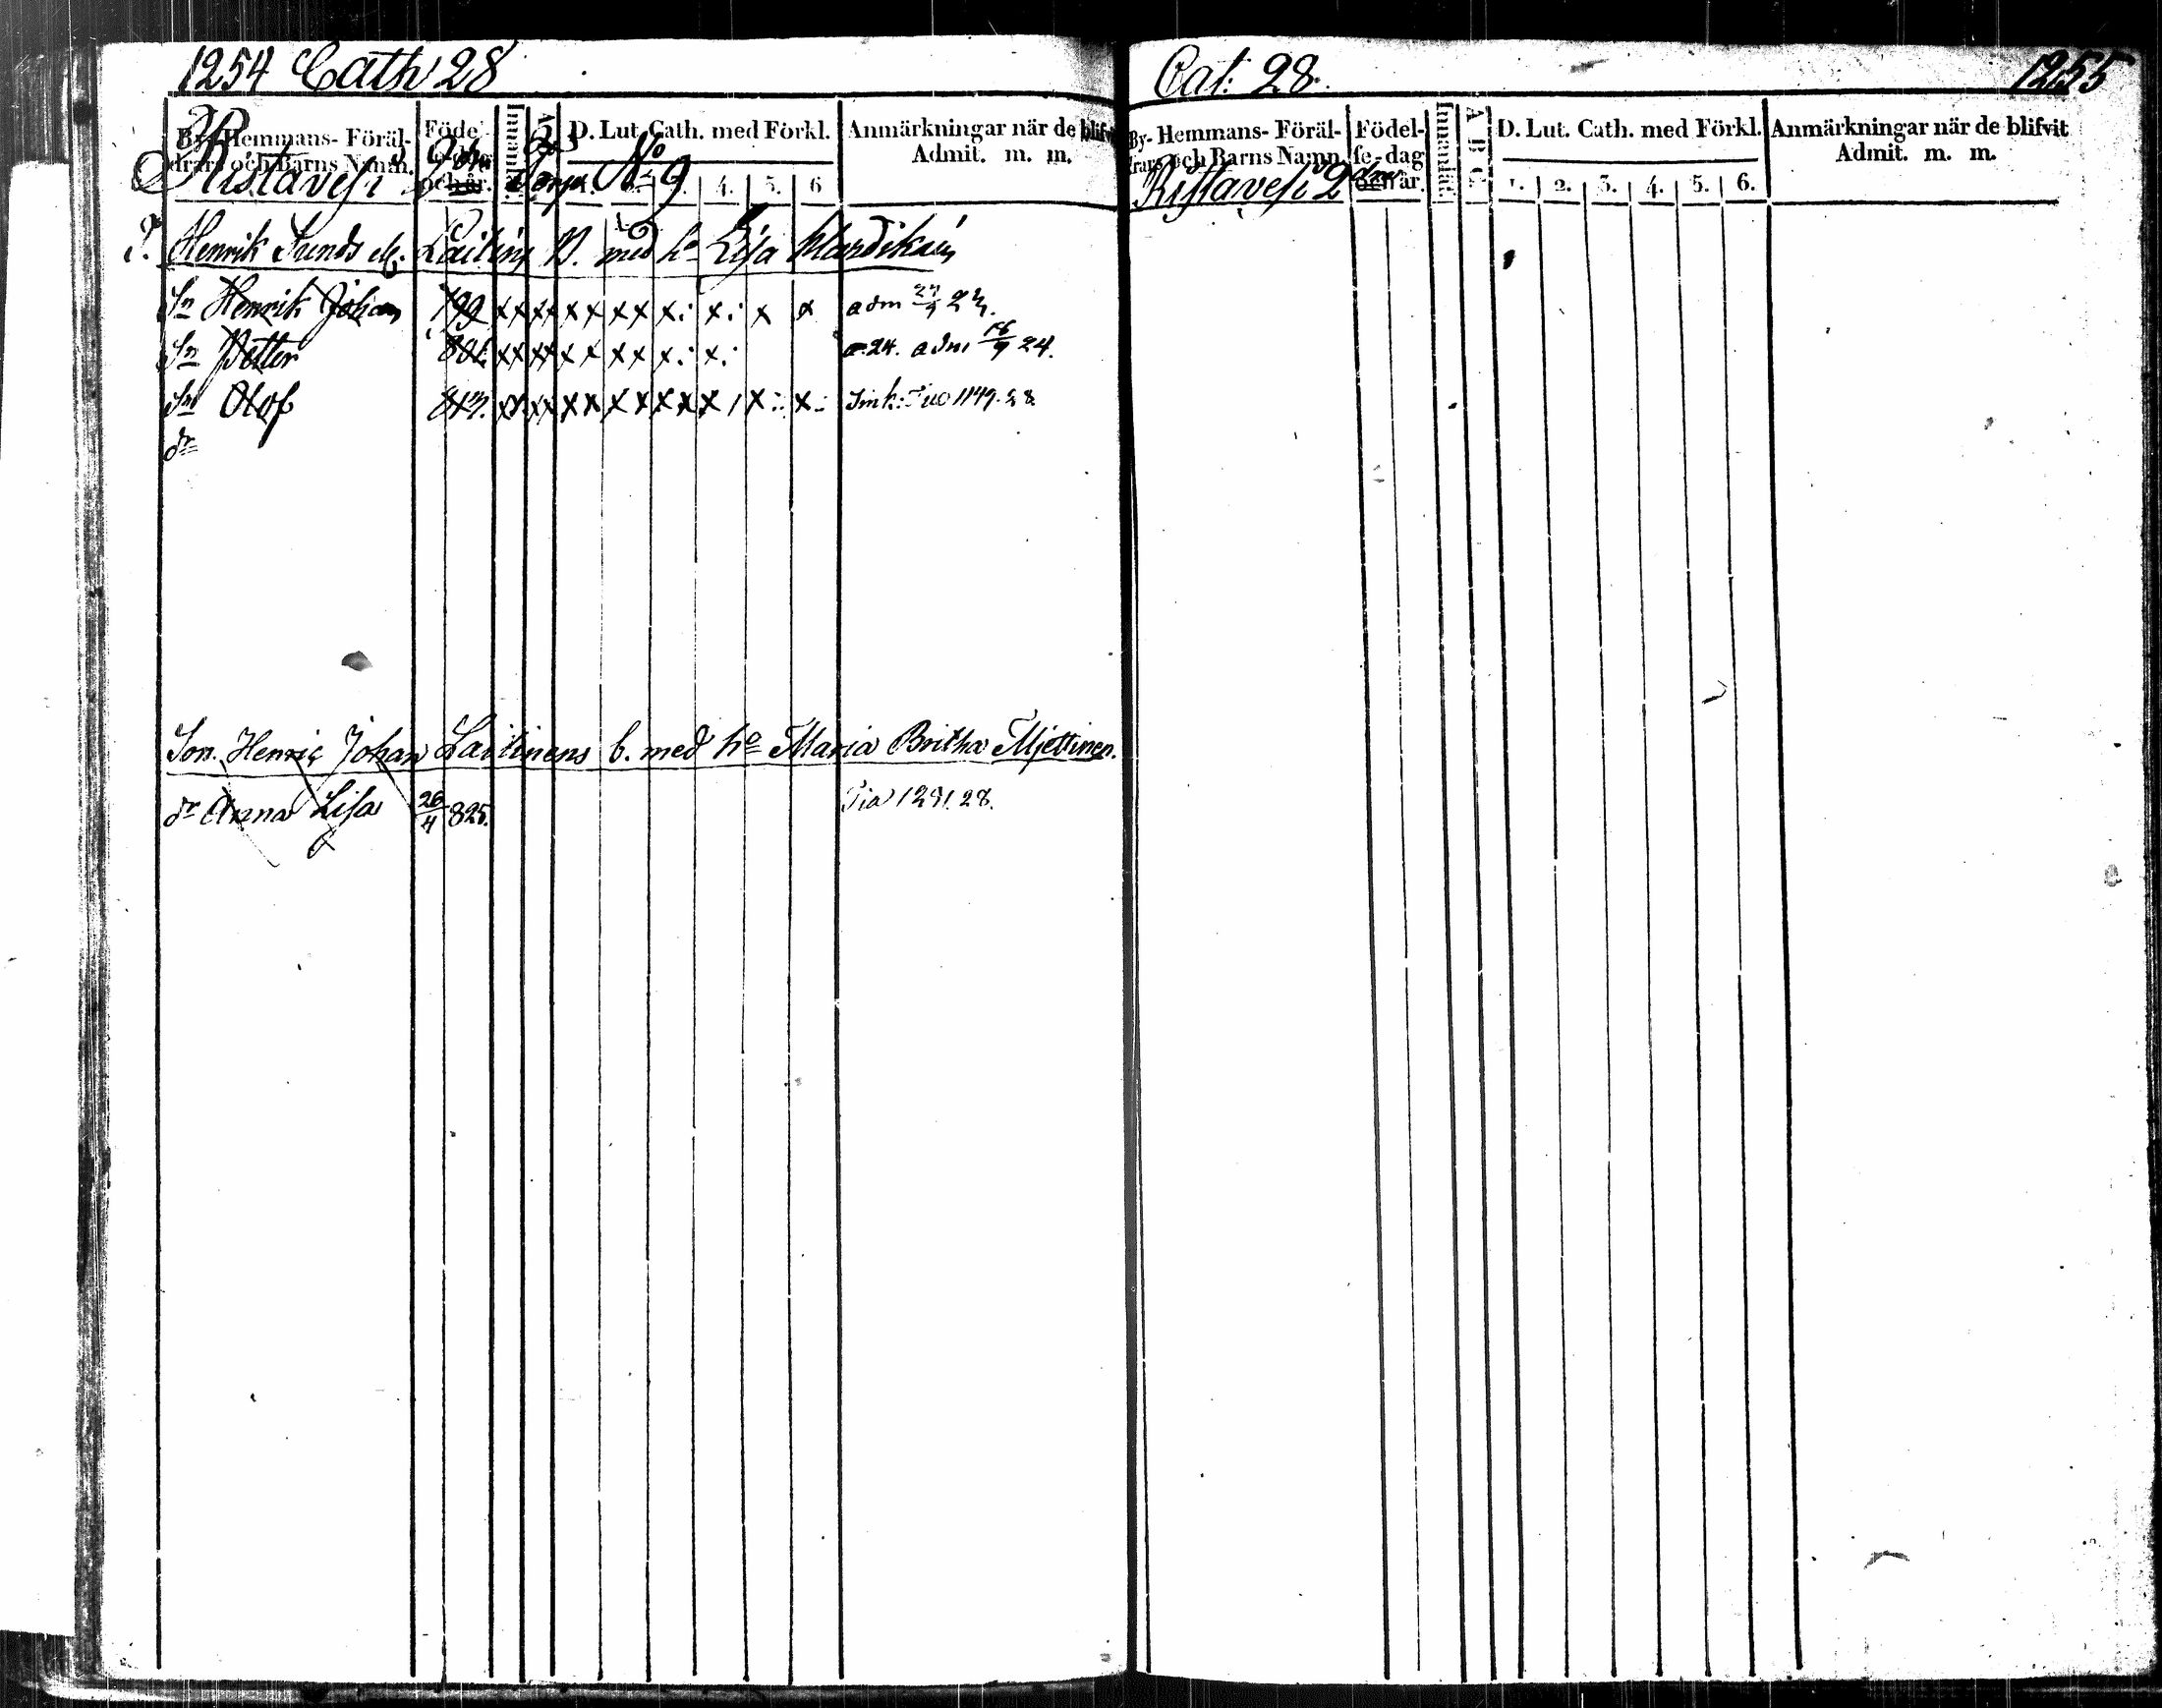 1254 Cath 28
By- Hemmans- Föräl-
drars och Barns Namn.
Föde
och år.
Innanläs
D. Lut. Cath. med Förkl.
4. 5. 6
Anmärkningar när de blifvit
Admit. m. m.
Ristavesi No 9
Henrik Sunds Laitins B. med ho Lisa
Sn Henrik Johan 799 x x x x x x x x x. x. x x adm
Sn Petter 806 x x x x x x x x x. x. a. 24. adm 16/9 24.
Sn Olof x x x x x x x x x x x x x
dr
Son. Henric Johan Laitinens b. med ho Maria Britha Mjettinen.
dr Anna Lisa 26/4 825. 1291.28.
Cat: 28. 1255
By- Hemmans- Föräl-
drars och Barns Namn.
Födel-
se-dag
och år.
Innanläs
A B C
D. Lut. Cath. med Förkl.
1. 2. 3. 4. 5. 6.
Anmärkningar när de blifvit
Admit. m. m.
Ristavesi 2